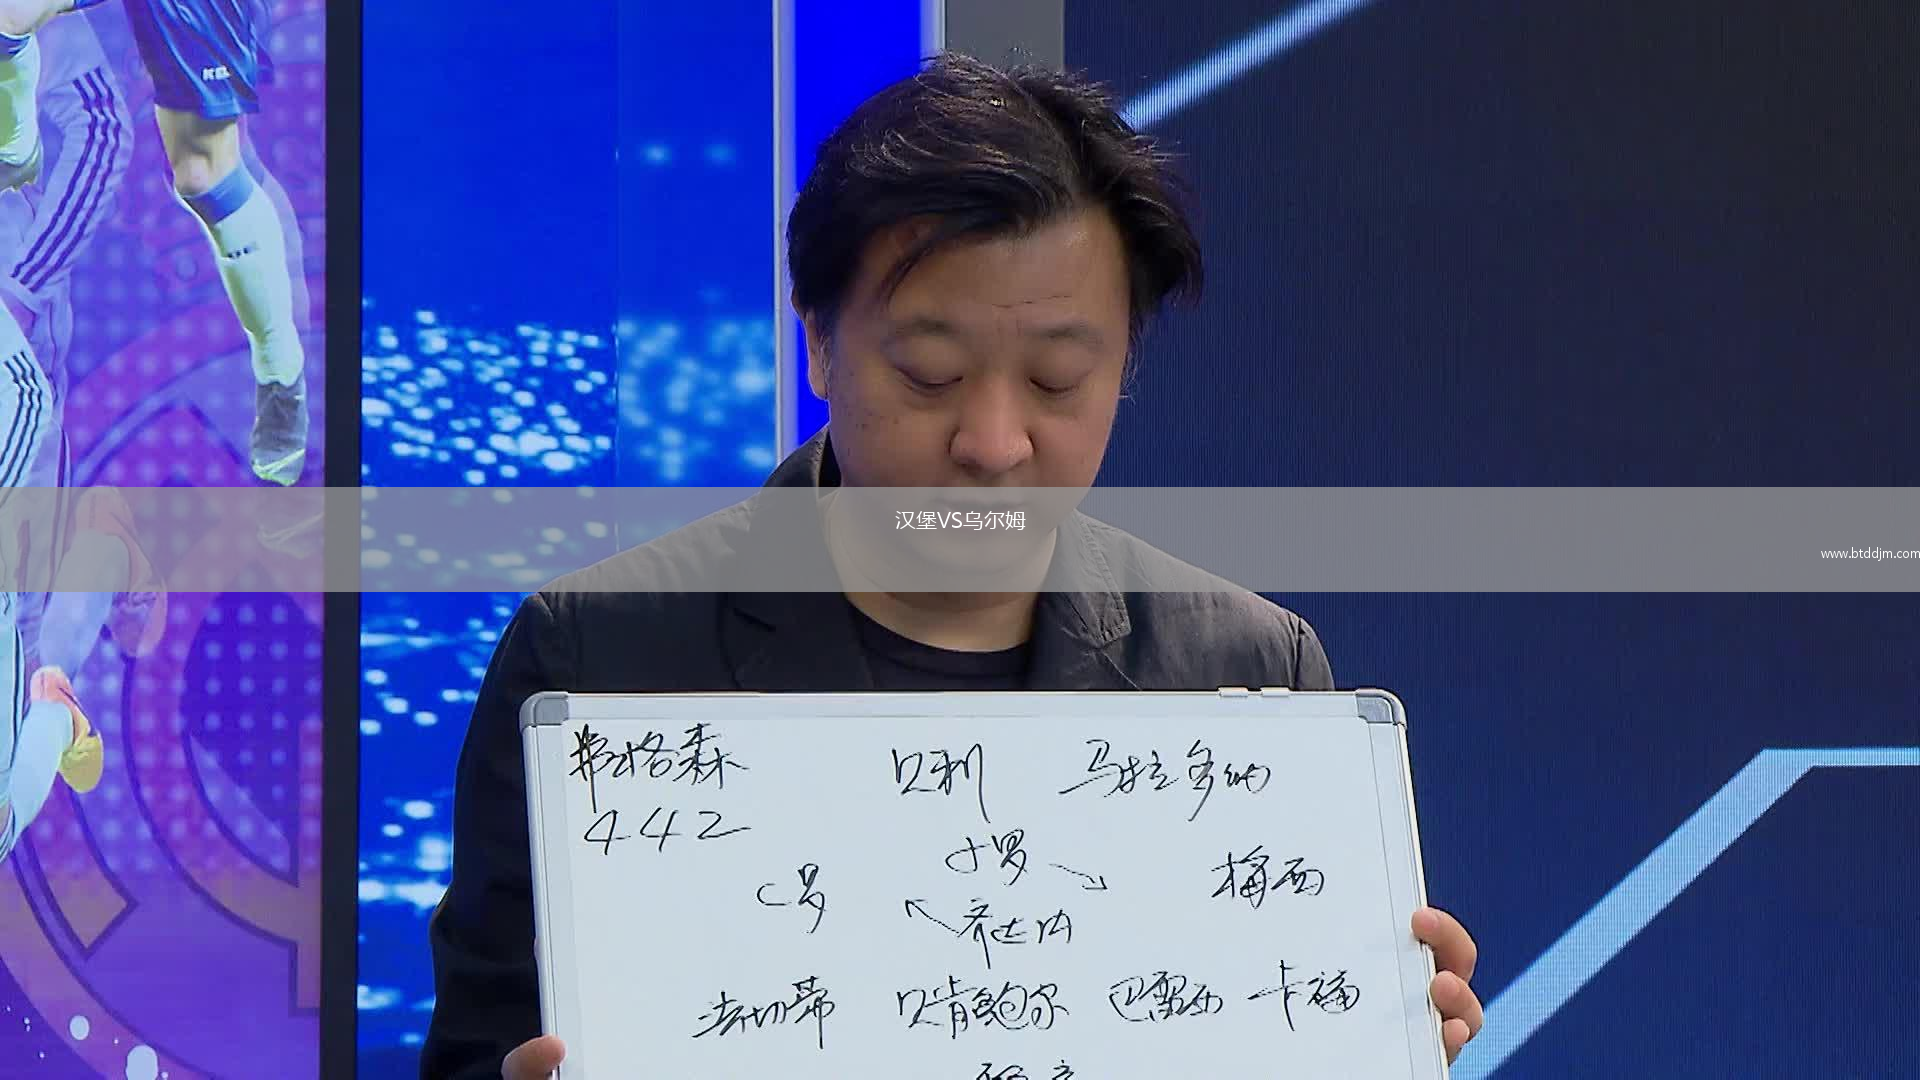 KEL
汉堡VS乌尔姆
www.btddjm.com
弗格森 贝利 马拉多纳
442
小罗
C罗 梅西
齐达内
法切蒂 贝肯鲍尔 巴雷西 卡福